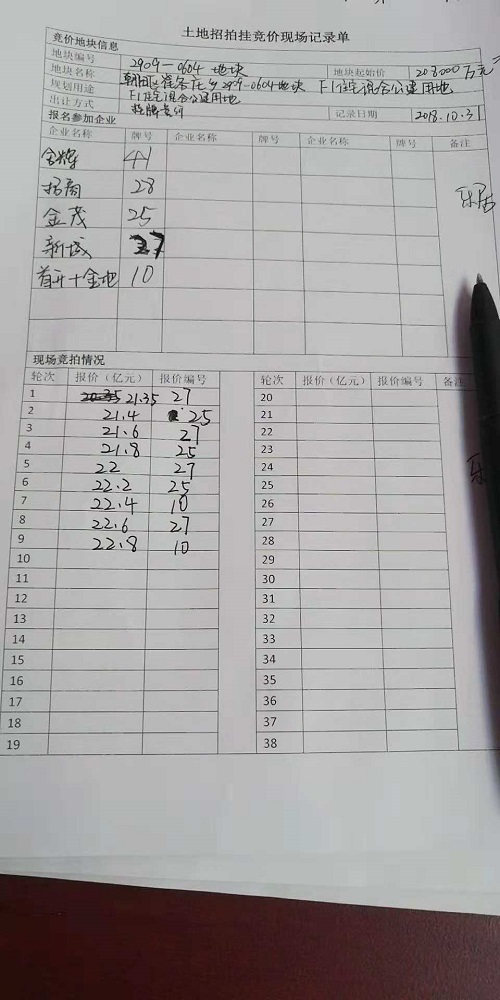 土地招拍挂竞价现场记录单
竞价地块信息
地块编号 2909-0604地块 地块起始价 208000万元
地块名称 朝阳区崔各庄乡2909-0604地块 F1住宅混合公建用地
规划用途 F1住宅混合公建用地
出让方式 挂牌 记录日期 2018.10.31
报名参加企业
企业名称 牌号 企业名称 牌号 企业名称 牌号 备注
金辉 41
招商 28
金茂 25
新城 27
首开+金地 10
现场竞拍情况
轮次 报价（亿元） 报价编号 轮次 报价（亿元） 报价编号 备注
1 21.35 27 20
2 21.4 25 21
3 21.6 27 22
4 21.8 25 23
5 22 27 24
6 22.2 25 25
7 22.4 10 26
8 22.6 27 27
9 22.8 10 28
10 29
11 30
12 31
13 32
14 33
15 34
16 35
17 36
18 37
19 38